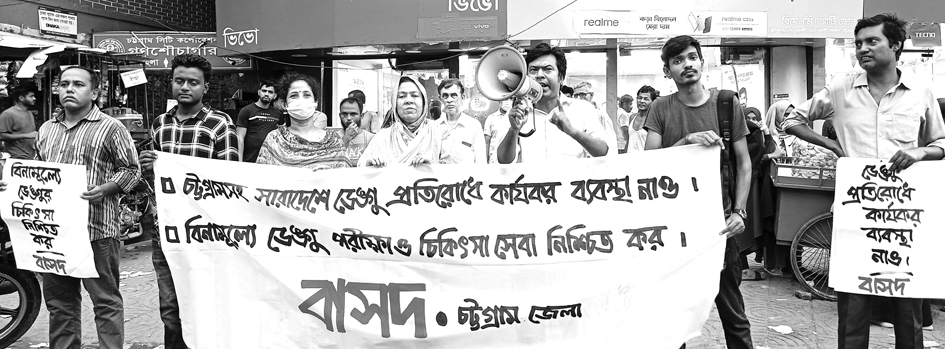 চট্টগ্রাম সিটি কর্পোরেশন
গণশৌচাগার
ভিভো
ভিভো
vivo
realme
realme C25s
TECNO
বিনামূল্যে
ডেঙ্গুর
চিকিৎসা
নিশ্চিত
কর
বাসদ
চট্টগ্রামসহ সারাদেশে ডেঙ্গু প্রতিরোধে কার্যকর ব্যবস্থা নাও ।
বিনামূল্যে ডেঙ্গু পরীক্ষা ও চিকিৎসা সেবা নিশ্চিত কর ।
বাসদ • চট্টগ্রাম জেলা
ডেঙ্গু
প্রতিরোধে
কার্যকর
ব্যবস্থা
নাও।
বাসদ